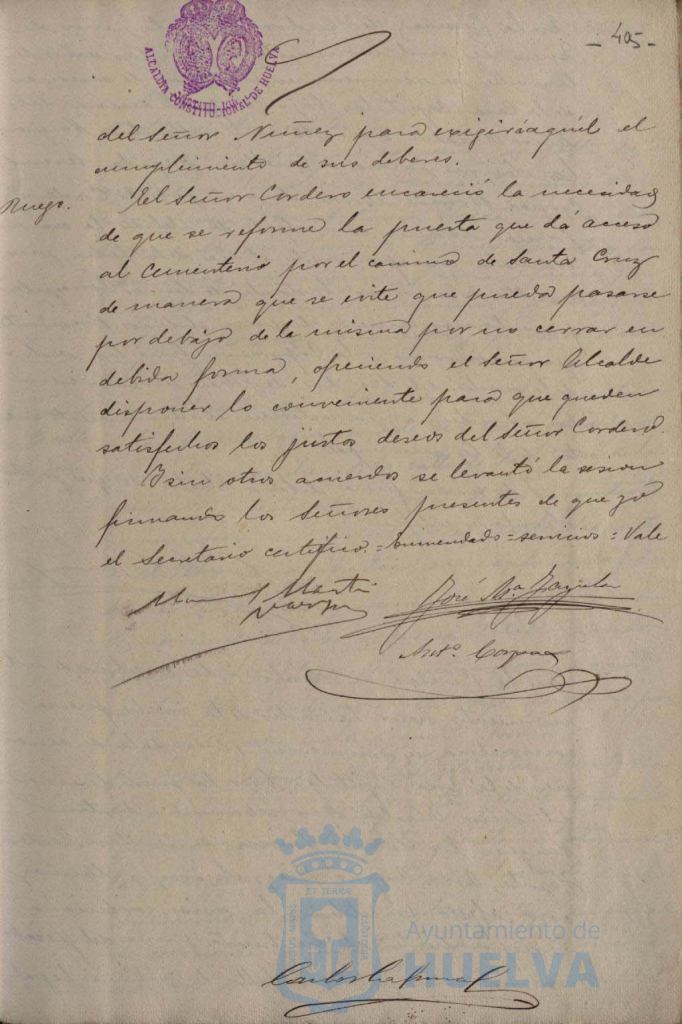 - 405 -
ALCALDIA CONSTITUCIONAL DE HUELVA
del Señor Nuñez para exigir á aquél el
cumplimiento de sus deberes.
Ruego.
El Señor Cordero encareció la necesidad
de que se reforme la puerta que dá acceso
al Cementerio por el camino de Santa Cruz
de manera que se evite que pueda pasarse
por debajo de la misma por no cerrar en
debida forma, ofreciendo el Señor Alcalde
disponer lo conveniente para que queden
satisfechos los justos deseos del Señor Cordero.
Y sin otros acuerdos se levantó la sesion
firmando los Señores presentes de que yo
el Secretario certifico. = Enmendado = servicios = Vale
José Mª
Antº.
Ayuntamiento de
HUELVA